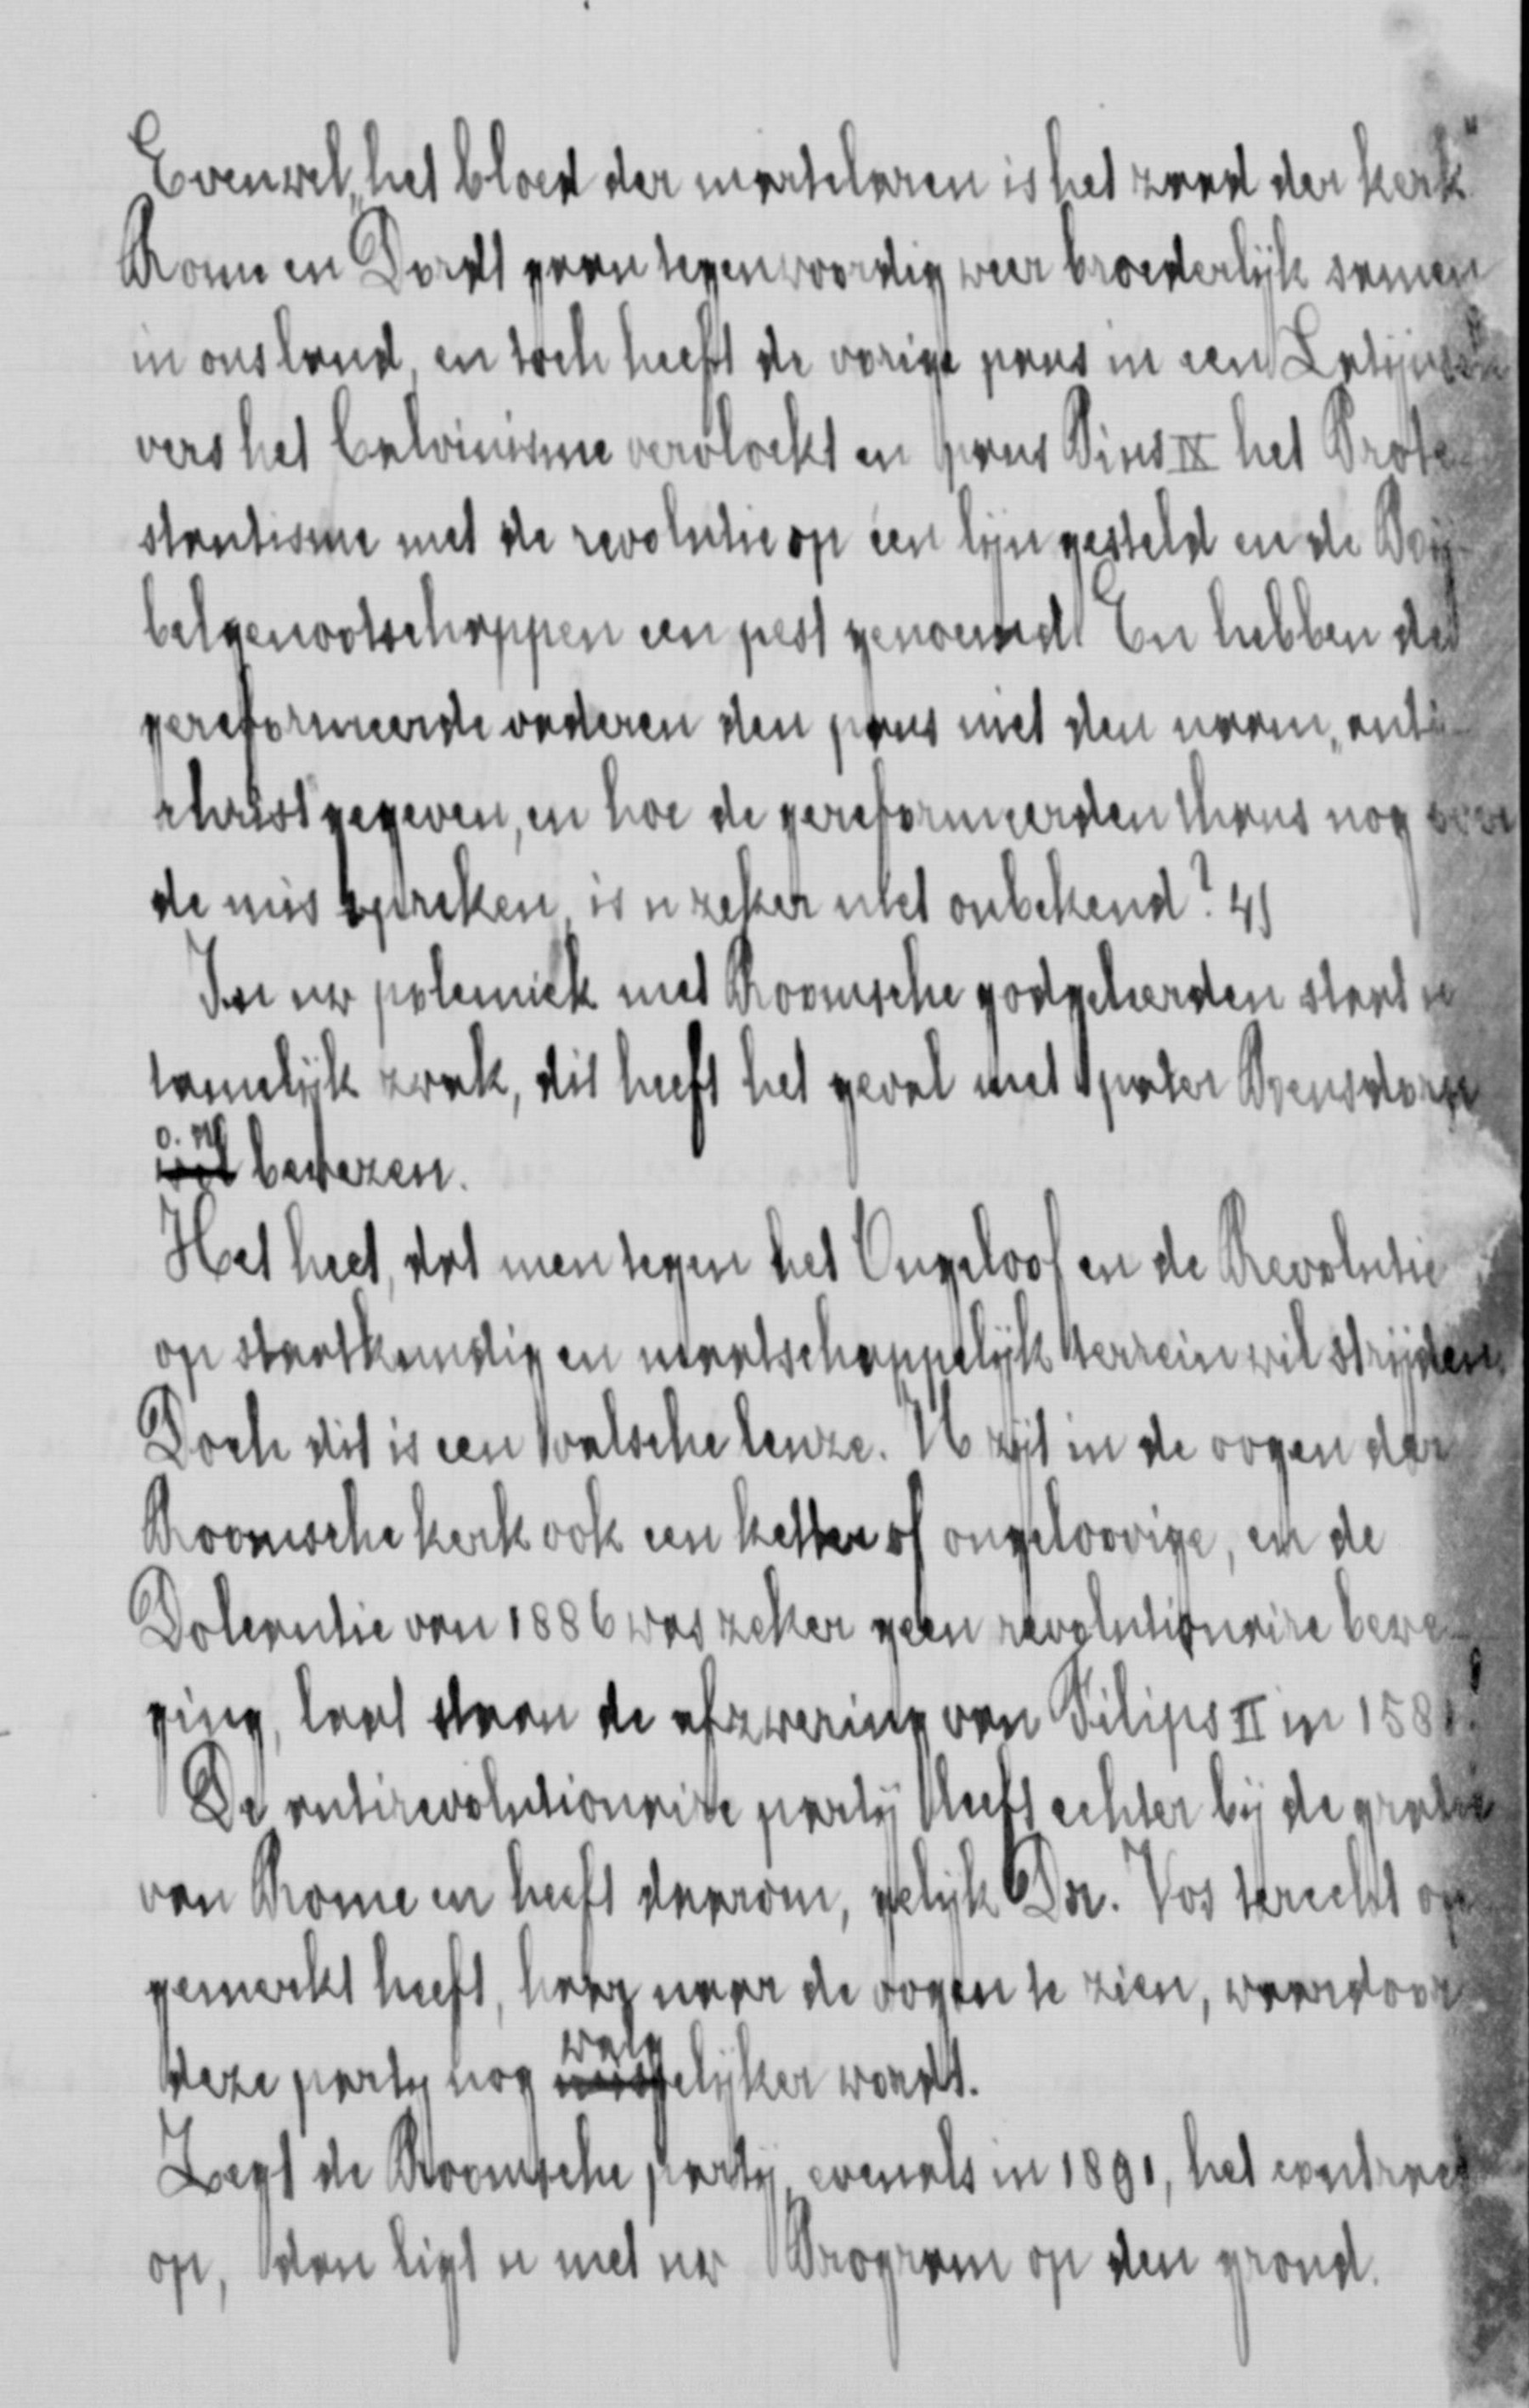 Evenwel „het bloed der martelaren is het zaad der kerk"
Rome en Dordt gaan tegenwoordig weer broederlijk samen
in ons land, en toch heeft de vorige paus in een Latijnsch
vers het Calvinisme vervloekt en paus Pius IX het Prote-
stantisme met de revolutie op één lijn gesteld en de Bij-
belgenootschappen een pest genoemd! En hebben de
gereformeerde vaderen den paus niet den naam „anti-
christ" gegeven, en hoe de gereformeerden thans nog over
de mis spreken, is u zeker niet onbekend? 4)
In uw polemiek met Roomsche godgeleerden staat u
tamelijk zwak, dit heeft het geval met pater Bensdorp
o. m.
wel bewezen.
Het heet, dat men tegen het Ongeloof en de Revolutie
op staatkundig en maatschappelijk terrein wil strijden.
Doch dit is een valsche leuze. U zijt in de oogen der
Roomsche kerk ook een ketter of ongeloovige, en de
Doleantie van 1886 was zeker geen revolutionaire bewe-
ging, laat staan de afzwering van Filips II in 1581?
De antirevolutionaire partij leeft echter bij de gratie
van Rome en heeft daarom, gelijk Dr. Vos terecht op
gemerkt heeft, haar naar de oogen te zien, waardoor
walg
deze partij nog misselijker wordt.
Zegt de Roomsche partij, evenals in 1891, het contract
op, dan ligt u met uw Program op den grond.